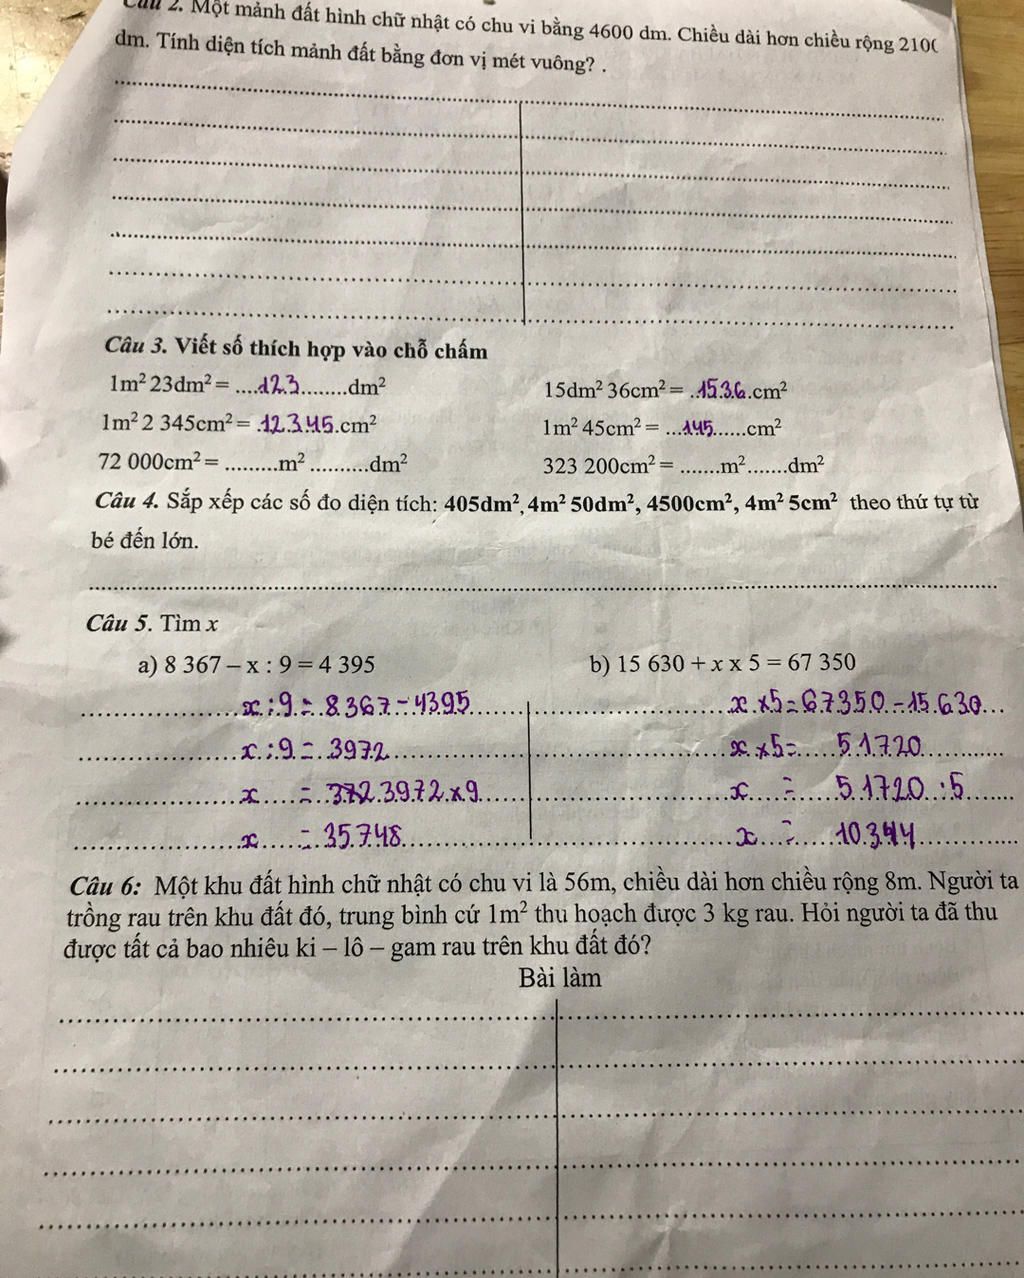 Câu 2. Một mảnh đất hình chữ nhật có chu vi bằng 4600 dm. Chiều dài hơn chiều rộng 210
dm. Tính diện tích mảnh đất bằng đơn vị mét vuông? .
Câu 3. Viết số thích hợp vào chỗ chấm
1m² 23dm² = ....123........dm²
15dm² 36cm² = ..1536.cm²
1m² 2 345cm² = .12345.cm²
1m² 45cm² = ...145......cm²
72 000cm² = .........m² ..........dm²
323 200cm² = .......m².......dm²
Câu 4. Sắp xếp các số đo diện tích: 405dm², 4m² 50dm², 4500cm², 4m² 5cm² theo thứ tự từ
bé đến lớn.
Câu 5. Tìm x
a) 8 367 – x : 9 = 4 395
b) 15 630 + x x 5 = 67 350
x : 9 = 8367 - 4395
x x5 = 67350 - 15630
x : 9 = 3972
x x5 = 51720
x = 3972 x 9
x = 51720 : 5
x = 35748
x = 10344
Câu 6: Một khu đất hình chữ nhật có chu vi là 56m, chiều dài hơn chiều rộng 8m. Người ta
trồng rau trên khu đất đó, trung bình cứ 1m² thu hoạch được 3 kg rau. Hỏi người ta đã thu
được tất cả bao nhiêu ki – lô – gam rau trên khu đất đó?
Bài làm